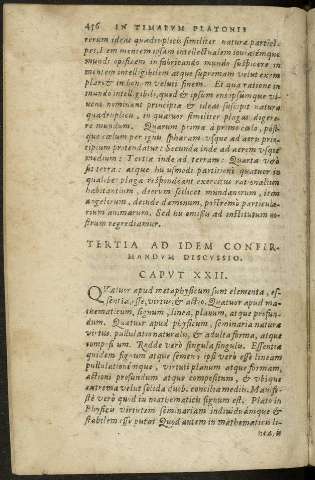 456 IN TIMAEVM PLATONIS
rerum idem quadruplicis similiter naturæ partici-
pes. Idem mentem ipsam intellectualem
mundi opificem in fabricando mundo suspicere in
mentem intelligibilem atque supremam velut exem
plar: & in bonum veluti finem. Et qua ratione in
mundo intelligibili, quod & ipsum
uens nominant principia & ideas suscipit natura
quadruplici, in quatuor similiter plagas digere-
re mundum. Quarum prima a primo cælo, post-
que cælum per igneū usque ad aeris prin-
cipium protendatur: Secunda inde ad aerem usque
medium: Tertia inde ad terram: Quarta verò
sit terra: atque huiusmodi partitioni quatuor in
qualibet plaga respondeant exercitus rationalium
habitantium, deorum scilicet mundanorum, item
angelorum, deinde dæmonum, postremò particula-
rium animarum. Sed his omissis ad institutum no-
strum regrediamur.
TERTIA AD IDEM CONFIR-
MANDVM DISCVSSIO.
CAPVT XXII.
QVatuor apud metaphysicum sunt elementa, es-
sentia, esse, virtus, & actio. Quatuor apud ma-
thematicum, signum, linea, planum, atque profun-
dum. Quatuor apud physicum, seminaria naturæ
virtus, pullulatio naturalis, & adulta forma, atque
compositum. Redde verò singula singulis. Essentiæ
quidem signum atque semen: ipsi verò esse lineam
pullulationemque, virtuti planum atque formam,
actioni profundum atque compositum, & ubique
extrema velut solida duob. concilia mediis. Manife-
stè verò quid in mathematicis signum est. Plato in
Physicis virtutem seminariam individuamque &
stabilem esse putat. Quod autem in mathematicis li-
nea, id